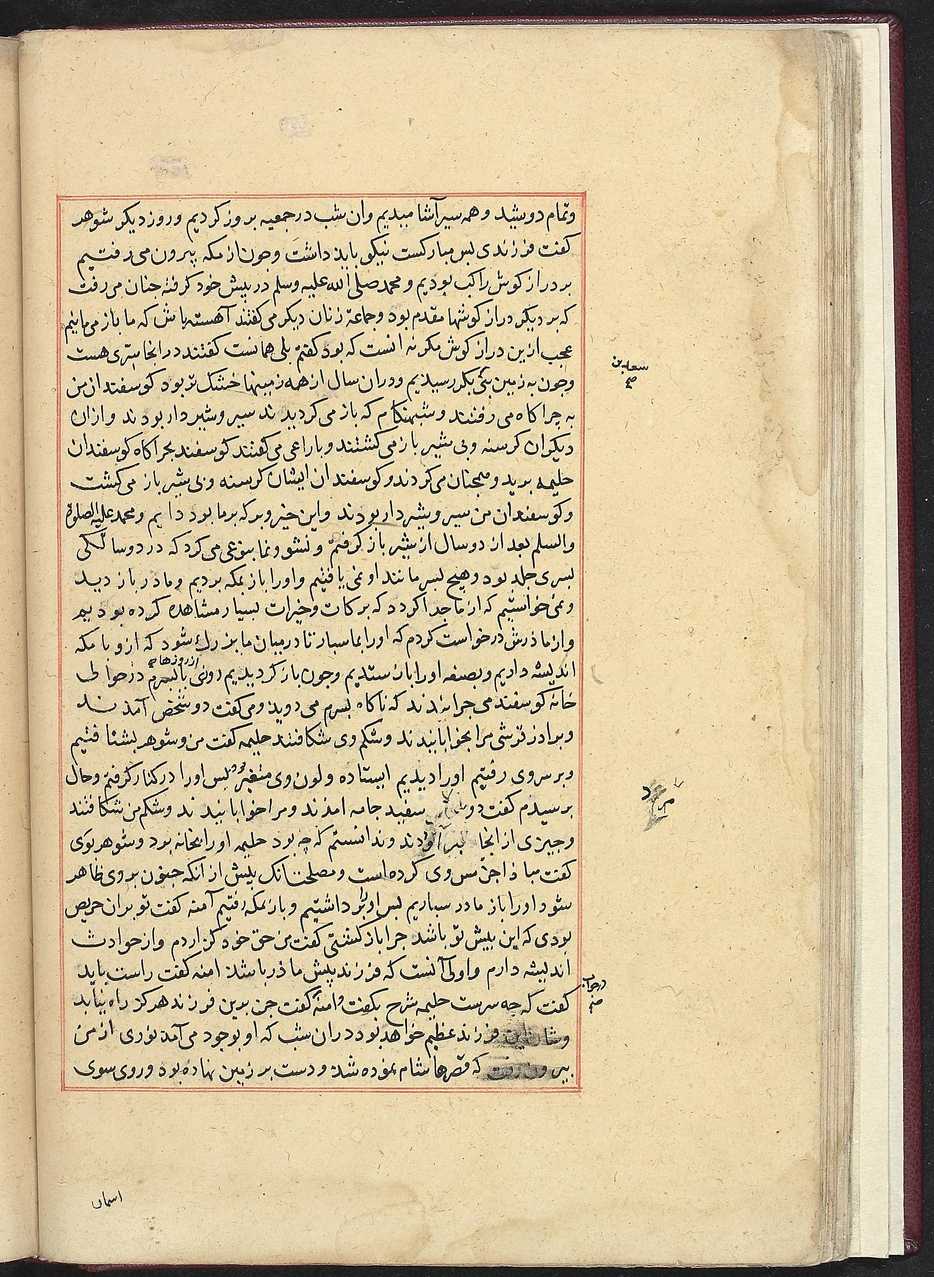 وتمام دوشید وهمه سیر آشامیدیم وان شب در جمعیه بروز کردیم وروز دیکر شوهر
کفت فرزندی بس مبارکست نیکو باید داشت وچون از مکه بیرون می رفتیم
بر درازکوش راکب بودیم ومحمد صلی الله علیه وسلم در پیش خود کرفته چنان می رفت
که بر دیکر درازکوشها مقدم بود وجماعة زنان دیکر می کفتند آهسته باش که ما باز می مانیم
عجب ازین درازکوش مکر نه انست که بود کفتم بلی همانست کفتند در انجا سرّی هست
وچون به زمین بنی بکر رسیدیم ودران سال از همه زمینها خشک تر بود کوسفند ان من
به چراکاه می رفتند وشبهنکام که باز می کردیدند سیر وشیردار بودند وازان
دیکران کرسنه وبی شیر باز می کشتند وبا راعی می کفتند کوسفند بچراکاه کوسفندان
حلیمه برید وهمچنان می کردند وکوسفند ان ایشان کرسنه وبی شیر باز می کشت
وکوسفندان من سیر وشیردار بودند واین خیر وبرکه بر ما بود دایم ومحمد علیه الصلوة
والسلم بعد از دو سال از شیر باز کرفتم ونشو ونما بنوعی می کرد که در دو سالکی
بسری جلد بود وهیچ بسر مانند او نمی یافتیم واورا باز بمکه بردیم ومادر باز دید
ونمی خواستیم که از ما جدا کردد که برکات وخیرات بسیار مشاهده کرده بودیم
واز مادرش درخواست کردم که اورا بما سپار تا درمیان ما بزرک شود که از وبا مکه
اندیشه داریم وبصفه اورا باز ستدیم وچون باز کردیدیم روزی از روزها با بسرم در حوالی
خانه کوسفند می چرانیدند که ناکاه بسرم می دوید ومی کفت دو شخص آمدند
وبرادر قرشی مرا بخوابانیدند وشکم وی شکافتند حلیمه کفت من وشوهر بشتافتیم
وبر سر وی رفتیم اورا دیدیم ایستاده ولون وی متغیر بود بس اورا در کنار کرفتم وحال
برسیدم کفت دو سفید جامه امدند ومرا خوابانیدند وشکم من شکافتند
وچیزی از انجا آوردند وندانستم که چه بود حلیمه اورا بخانه بود وشوهر بوی
کفت مبادا جن مس وی کرده است ومصلحت انک پیش از انکه جنون بر وی ظاهر
شود اورا باز مادر سپاریم بس اورا برداشتیم وباز بمکه رفتیم آمنه کفت تو بران حریص
بودی که این پیش تو باشد چرا باز کشتی کفت من حق خود کزاردم واز حوادث
اندیشه دارم واولی آنست که فرزند پیش مادر باشد امنه کفت راست باید
کفت که چه سرست حلیمه شرح بکفت وامنه کفت جن برین فرزند هرکز راه نیابد
وشان این فرزند عظیم خواهد بود دران شب که او بوجود می آمد نوری از من
بیرون رفت که قصرها شام نموده شد ودست بر زمین نهاده بود وروی سوی
سعد بن
صح
مرد
در جواب
صح
اسمان